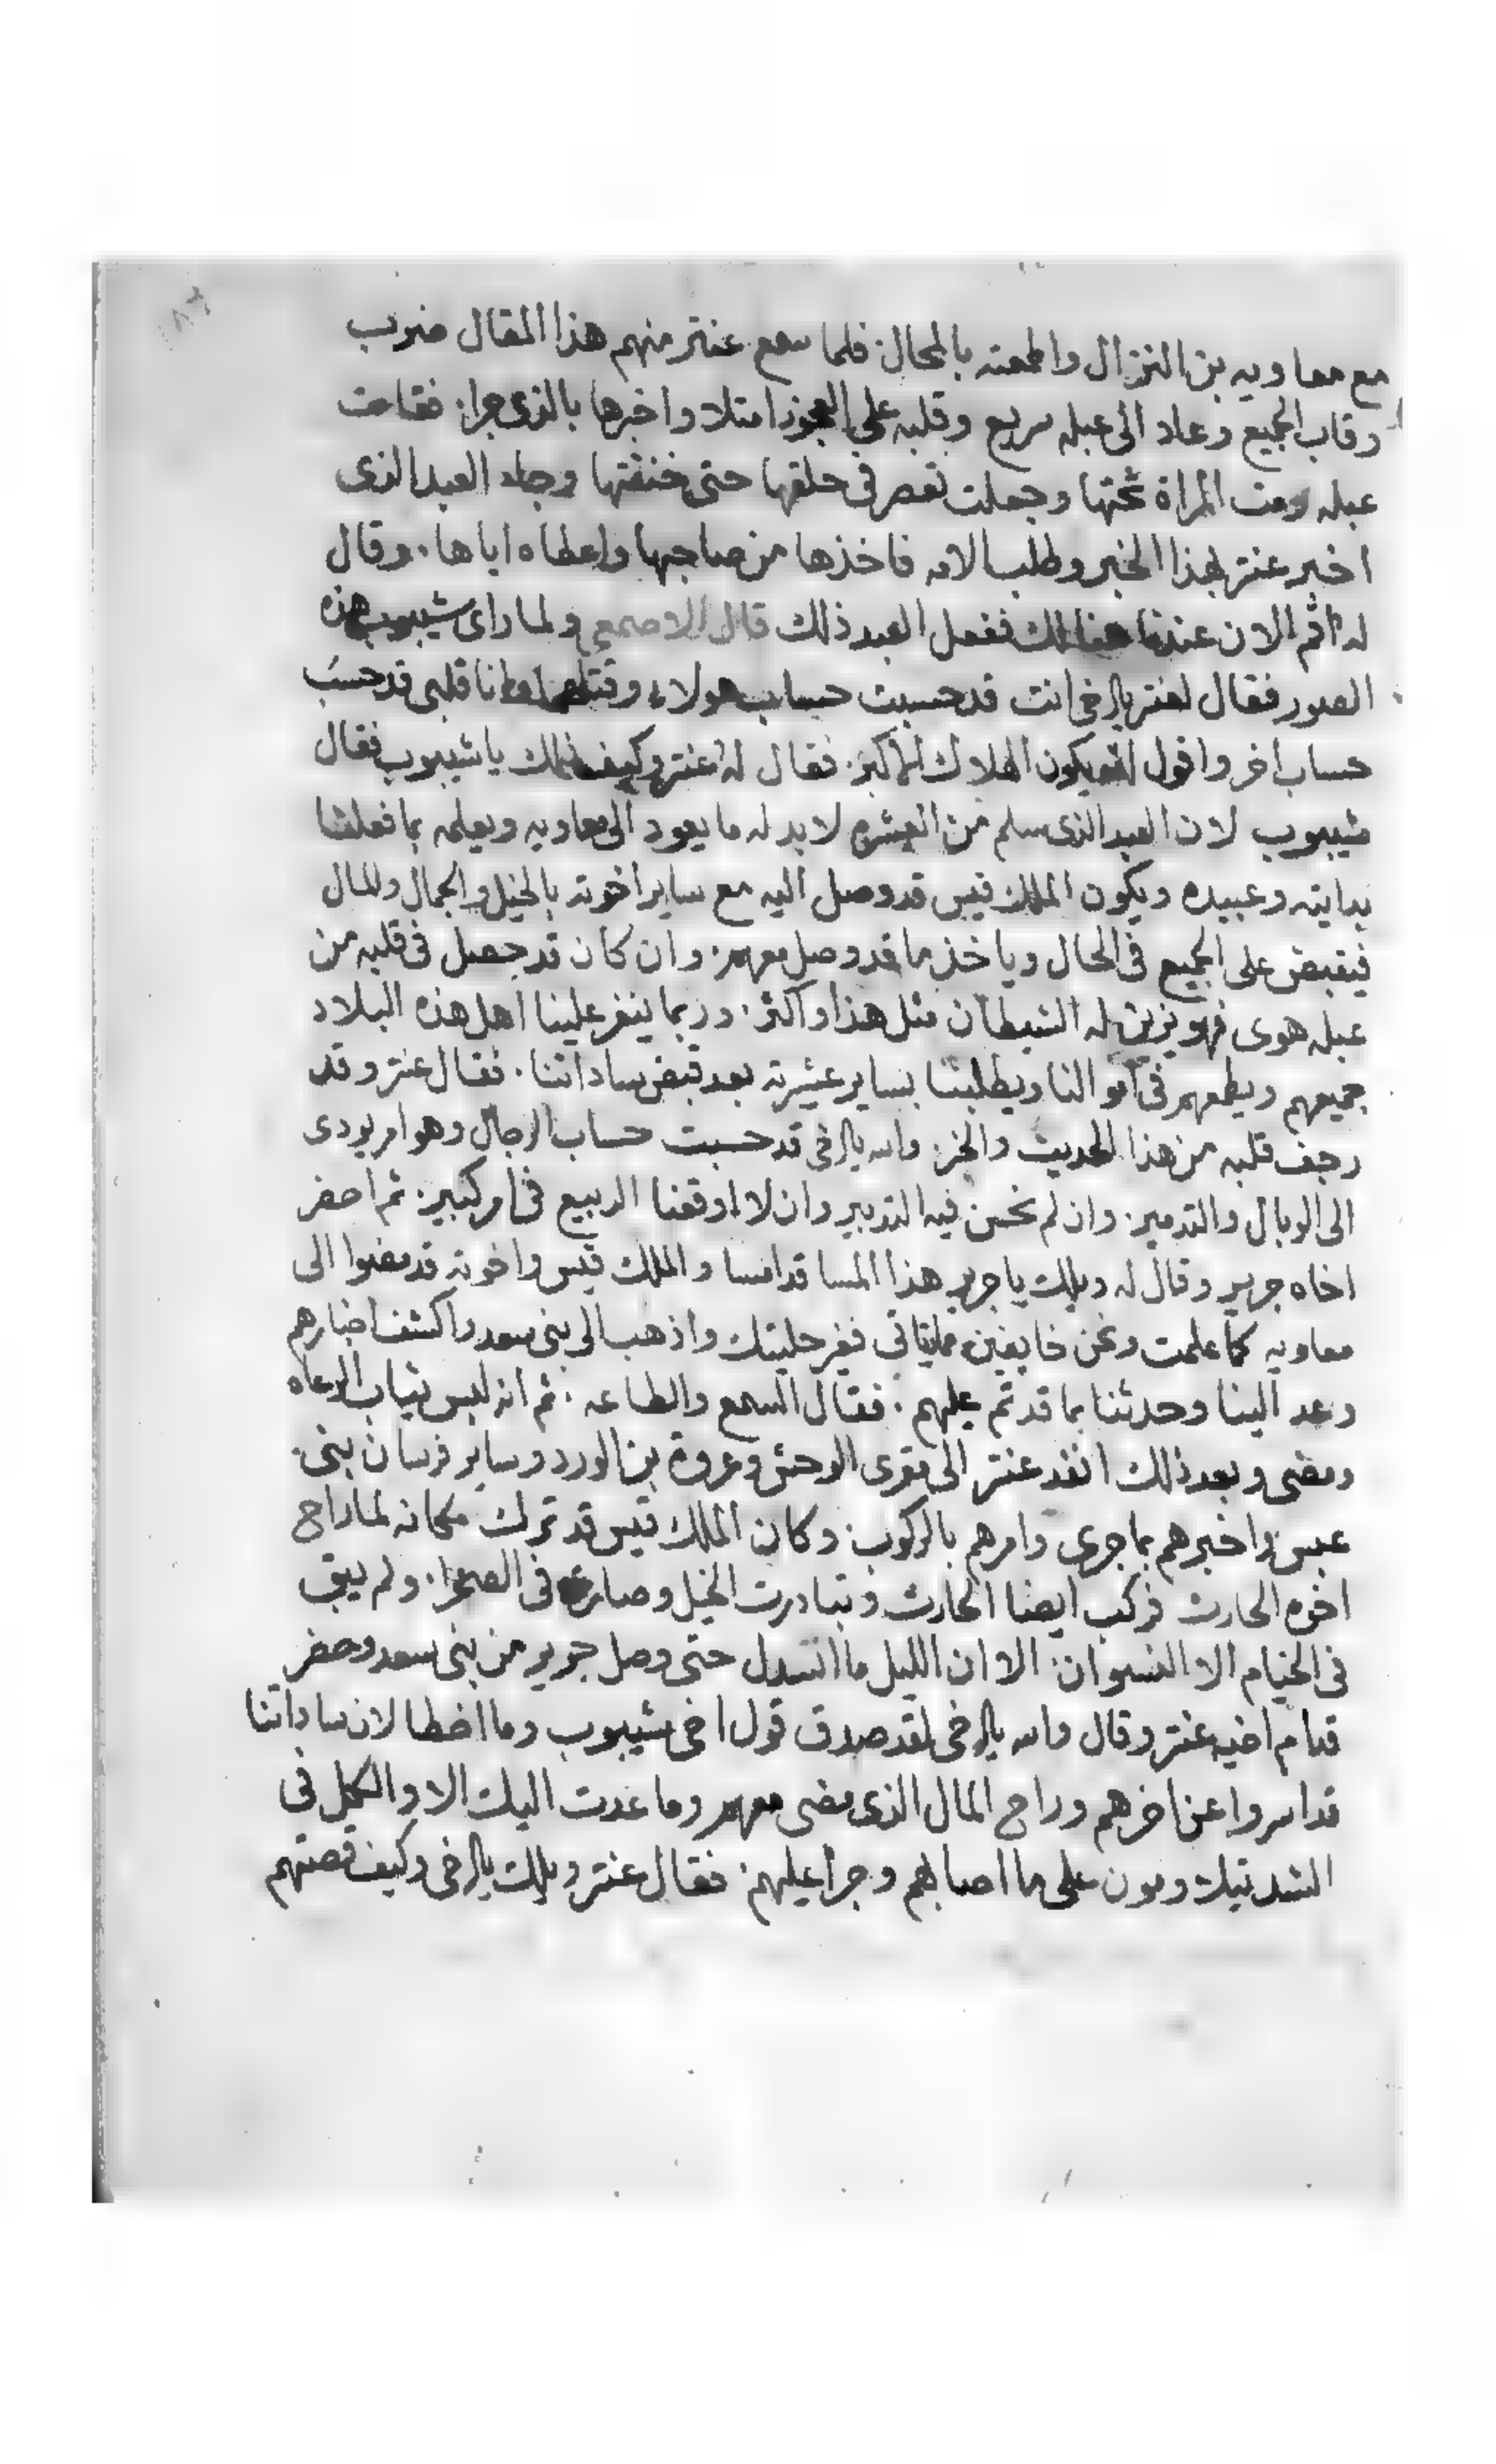 مع معاويه بن النزال واطمعته بالمحال فلما سمع عنتر منهم هذا المقال ضرب
رقاب الجميع وعاد الى عبله سريع وقلبه على العجوز امتلا واخبرها بالذى جرا فقامت
عبله ورمت المراة تحتها وجعلت تعصر فى حلقها حتى خنقتها وجاه العبد الذى
اخبر عنتر بهذا الخبر وطلب الامه فاخذها من صاحبها واعطاه اياها وقال
له اقم الان عندنا هنالك ففعل العبد ذلك قال الاصمعى ولما راى شيبوب هذه
فقال لعنتر يالاخى انت قد حسبت حساب هولاء وقتلتهم انا قلبى قد حسب
حساب اخر واقول انه يكون الهلاك الاكبر فقال له عنتر وكيف ذلك يا شيبوب فقال
شيبوب لان العبد الذى سلم من العشره لا بد له ما يعود الى معاويه ويعلمه بما فعلنا
بدايته وعبيده ويكون الملك قيس قد وصل اليه مع ساير اخوته بالخيل والجمال والمال
فيقبض على الجميع فى الحال وياخذ ما قد وصل معهم وان كان قد حصل فى قلبه من
عبله هوى فهو يزين له الشيطان مثل هذا واكثر وربما ينفر علينا اهل هذه البلاد
جميعهم ويطمعهم فى اموالنا ويطلبنا بساير عشيرته بعد قبض ساداتنا فقال عنتر وقد
رجف قلبه من هذا الحديث والخبر والله يالاخى قد حسبت حساب الرجال وهو امر يودى
الى الوبال والتدمير وان لم نحسن فيه التدبير وان لا اوقعنا الربيع فى امر كبير ثم احضر
اخاه جرير وقال له ويلك يا جرير هذا المسا قد امسا والملك قيس واخوته قد مضوا الى
معاويه كما علمت ونحن خايفين مما ياتى فغير حليتك واذهب الى بنى سعد واكشف اخبارهم
وعد الينا وحدثنا بما قد تم عليهم فقال السمع والطاعه ثم انه لبس ثياب الرعاه
ومضى وبعد ذلك انفد عنتر الى مقرى الوحش وعروة بن الورد وساير فرسان بنى
عبس واخبرهم بما جرى وامرهم بالركوب وكان الملك قيس قد ترك مكانه لما راح
اخوه الحارث فركب ايضا الحارث وتبادرت الخيل وصارت فى الصحرا ولم يبق
فى الخيام الا النسوان الا ان الليل ما انسدل حتى وصل جرير من بنى سعد وحضر
قدام اخيه عنتر وقال والله يالاخى لقد صدق قول اخى شيبوب وما اخطا لان ساداتنا
قد اسروا عن اخرهم وراح المال الذى مضى معهم وما عدت اليك الا والكل فى
الشد على ما اصابهم وجرا عليهم فقال عنتر ويلك يالاخى وكيف قصتهم